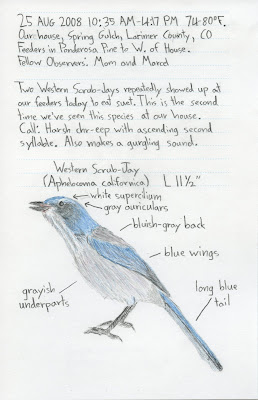 25 AUG 2008 10:35 AM-4:17 PM 74-80°F.
Our house, Spring Gulch, Larimer County, CO
Feeders in Ponderosa Pine to W. of House.
Fellow Observers: Mom and Marcel
Two Western Scrub-Jays repeatedly showed up at
our feeders today to eat suet. This is the second
time we've seen this species at our house.
Call: Harsh chr-eep with ascending second
syllable. Also makes a gurgling sound.
Western Scrub-Jay
(Aphelocoma californica) L 11½"
white supercilium
gray auriculars
bluish-gray back
blue wings
grayish
underparts
long blue
tail